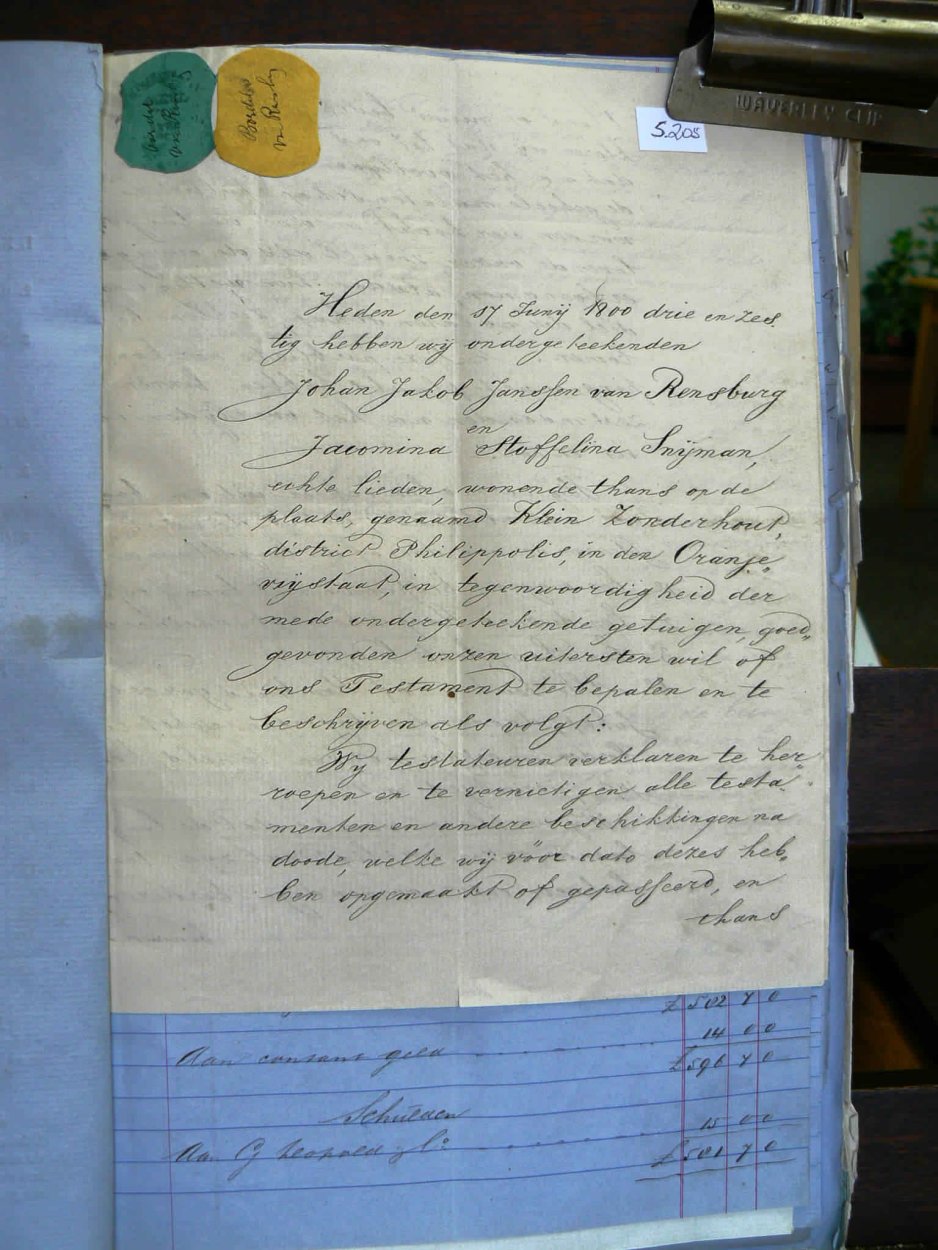 S.205
WAVERLEY CLIP
Heden den 17 Junij 1800 drie en zes
tig hebben wij ondergeteekenden
Johan Jakob Janssen van Rensburg
en
Jacomina Stoffelina Snijman,
echte lieden, wonende thans op de
plaats, genaamd Klein Zonderhout,
district Philippolis, in den Oranje„
vrijstaat, in tegenwoordigheid der
mede ondergeteekende getuigen, goed„
gevonden onzen uitersten wil of
ons Testament te bepalen en te
beschrijven als volgt:
Wij testateuren verklaren te her„
roepen en te vernietigen alle testa„
menten en andere beschikkingen na
doode, welke wij vóór dato dezes heb„
ben opgemaakt of gepasseerd, en
thans
£ 582 7 0
14 0 0
Aan contant geld
£ 596 7 0
Schulden
15 0 0
Aan G
£ 581 7 0